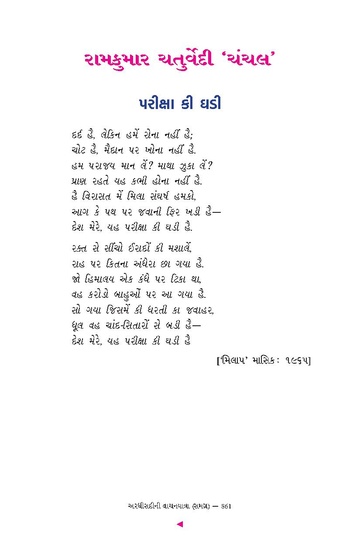 રામકુમાર ચતુર્વેદી ‘ચંચલ’
પરીક્ષા કી ઘડી
દર્દ હૈ, લેકિન હમેં રોના નહીં હૈ;
ચોટ હૈ, મૈદાન પર ખોના નહીં હૈ.
હમ પરાજય માન લેં? માથા ઝુકા લેં?
પ્રાણ રહતે યહ કભી હોના નહીં હૈ.
હૈ વિરાસત મેં મિલા સંઘર્ષ હમકો,
આગ કે પથ પર જવાની ફિર ખડી હૈ—
દેશ મેરે, યહ પરીક્ષા કી ઘડી હૈ.
રક્ત સે સીંચો ઈરાદોં કી મશાલેં,
રાહ પર કિતના અંધેરા છા ગયા હૈ.
જો હિમાલય એક કંધે પર ટિકા થા,
વહ કરોડો બાહુઓં પર આ ગયા હૈ.
સો ગયા જિસમેં કી ધરતી કા જવાહર,
ધૂલ વહ ચાંદ-સિતારોં સે બડી હૈ—
દેશ મેરે, યહ પરીક્ષા કી ઘડી હૈ
[‘મિલાપ’ માસિક : ૧૯૬૫]
અરધીસદીની વાચનયાત્રા (સમગ્ર) — 861
◄